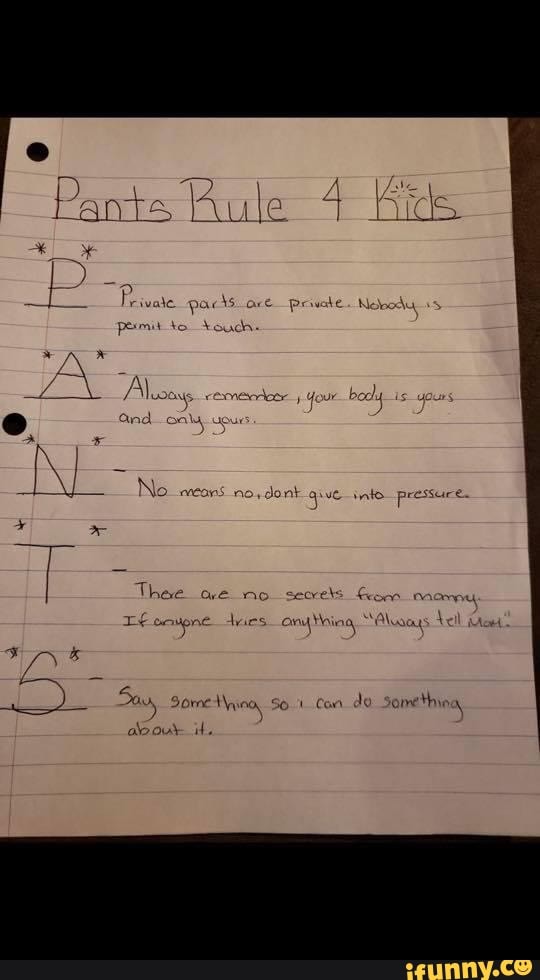 Pants Rule 4 Kids
* *
P - Private parts are private. Nobody is
permit to touch.
* *
A - Always remember, your body is yours
and only yours.
* *
N - No means no, dont give into pressure.
* *
T - There are no secrets from mommy.
If anyone tries anything "Always tell Mom".
* *
S - Say something so i can do something
about it.
ifunny.co